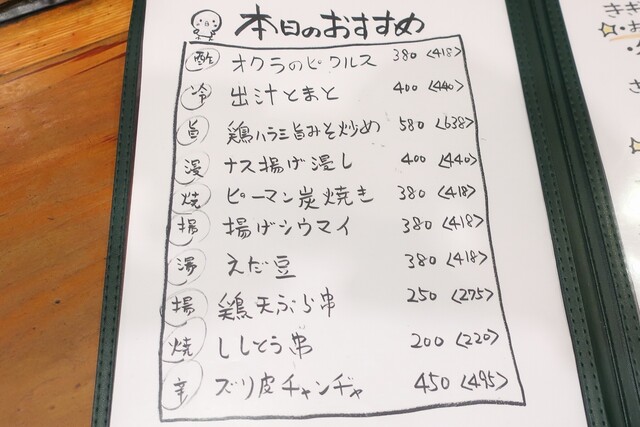 本日のおすすめ
酢 オクラのピクルス 380 <418>
冷 出汁とまと 400 <440>
旨 鶏ハラミ旨みそ炒め 580 <638>
浸 ナス揚げ浸し 400 <440>
焼 ピーマン炭焼き 380 <418>
揚 揚げシウマイ 380 <418>
湯 えだ豆 380 <418>
揚 鶏天ぷら串 250 <275>
焼 ししとう串 200 <220>
辛 ズリ皮チャンヂャ 450 <495>